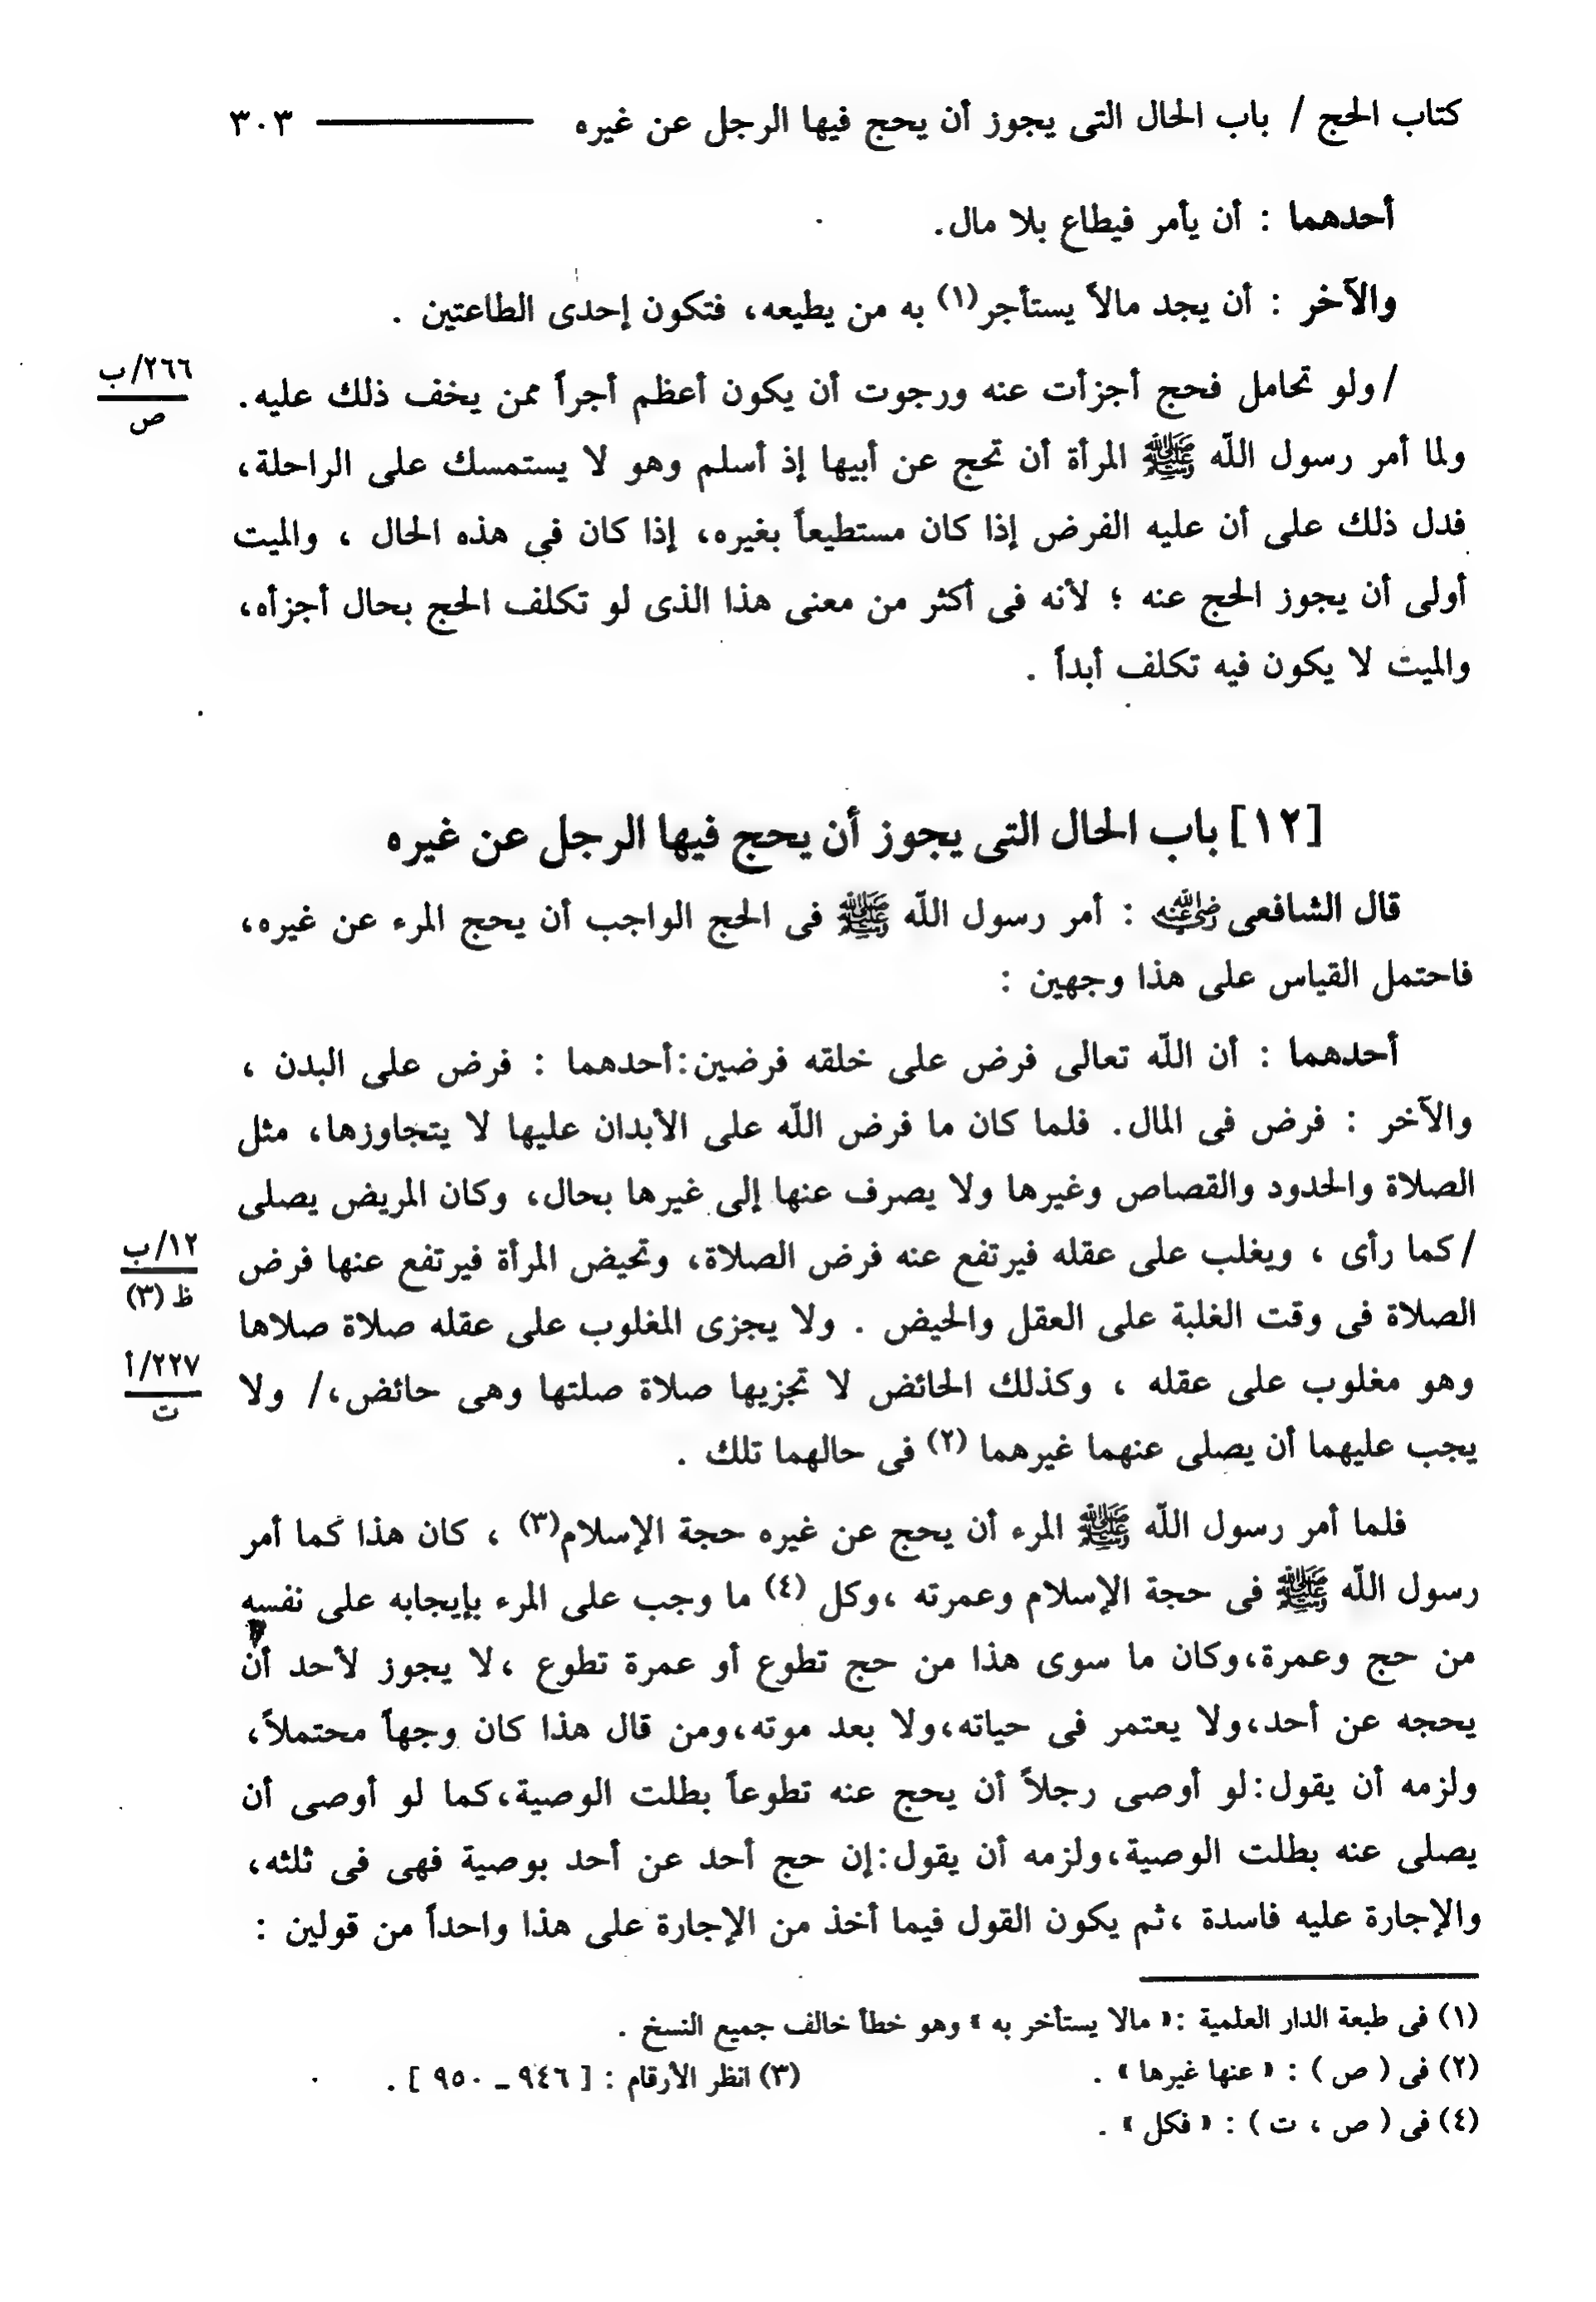 كتاب الحج / باب الحال التى يجوز أن يحج فيها الرجل عن غيره ــــــــــ ٣٠٣
أحدهما : أن يأمر فيطاع بلا مال.
والآخر : أن يجد مالاً يستأجر(١) به من يطيعه، فتكون إحدى الطاعتين .
/ ولو تحامل فحج أجزأت عنه ورجوت أن يكون أعظم أجراً ممن يخف ذلك عليه.
٢٦٦/ب
ص
ولما أمر رسول اللّه ﷺ المرأة أن تحج عن أبيها إذ أسلم وهو لا يستمسك على الراحلة،
فدل ذلك على أن عليه الفرض إذا كان مستطيعاً بغيره، إذا كان في هذه الحال ، والميت
أولى أن يجوز الحج عنه ؛ لأنه فى أكثر من معنى هذا الذى لو تكلف الحج بحال أجزأه،
والميت لا يكون فيه تكلف أبداً .
[١٢] باب الحال التى يجوز أن يحج فيها الرجل عن غيره
قال الشافعى رضي الله عنه : أمر رسول اللّه ﷺ فى الحج الواجب أن يحج المرء عن غيره،
فاحتمل القياس على هذا وجهين :
أحدهما : أن اللّه تعالى فرض على خلقه فرضين:أحدهما : فرض على البدن ،
والآخر : فرض فى المال. فلما كان ما فرض اللّه على الأبدان عليها لا يتجاوزها، مثل
الصلاة والحدود والقصاص وغيرها ولا يصرف عنها إلى غيرها بحال، وكان المريض يصلى
/ كما رأى ، ويغلب على عقله فيرتفع عنه فرض الصلاة، وتحيض المرأة فيرتفع عنها فرض
١٢/ب
ظ (٣)
الصلاة فى وقت الغلبة على العقل والحيض . ولا يجزى المغلوب على عقله صلاة صلاها
وهو مغلوب على عقله ، وكذلك الحائض لا تجزيها صلاة صلتها وهى حائض،/ ولا
٢٢٧/أ
ت
يجب عليهما أن يصلى عنهما غيرهما (٢) فى حالهما تلك .
فلما أمر رسول اللّه ﷺ المرء أن يحج عن غيره حجة الإسلام(٣) ، كان هذا كما أمر
رسول اللّه ﷺ فى حجة الإسلام وعمرته ،وكل (٤) ما وجب على المرء بإيجابه على نفسه
من حج وعمرة،وكان ما سوى هذا من حج تطوع أو عمرة تطوع ،لا يجوز لأحد أن
يحجه عن أحد،ولا يعتمر فى حياته،ولا بعد موته،ومن قال هذا كان وجهاً محتملاً،
ولزمه أن يقول:لو أوصى رجلاً أن يحج عنه تطوعاً بطلت الوصية،كما لو أوصى أن
يصلى عنه بطلت الوصية،ولزمه أن يقول:إن حج أحد عن أحد بوصية فهى فى ثلثه،
والإجارة عليه فاسدة ،ثم يكون القول فيما أخذ من الإجارة على هذا واحداً من قولين :
(١) فى طبعة الدار العلمية :« مالا يستأخر به » وهو خطأ خالف جميع النسخ .
(٢) فى ( ص ) : « عنها غيرها » . (٣) انظر الأرقام : [ ٩٤٦ ـ ٩٥٠ ] .
(٤) فى ( ص ، ت ) : « فكل » .